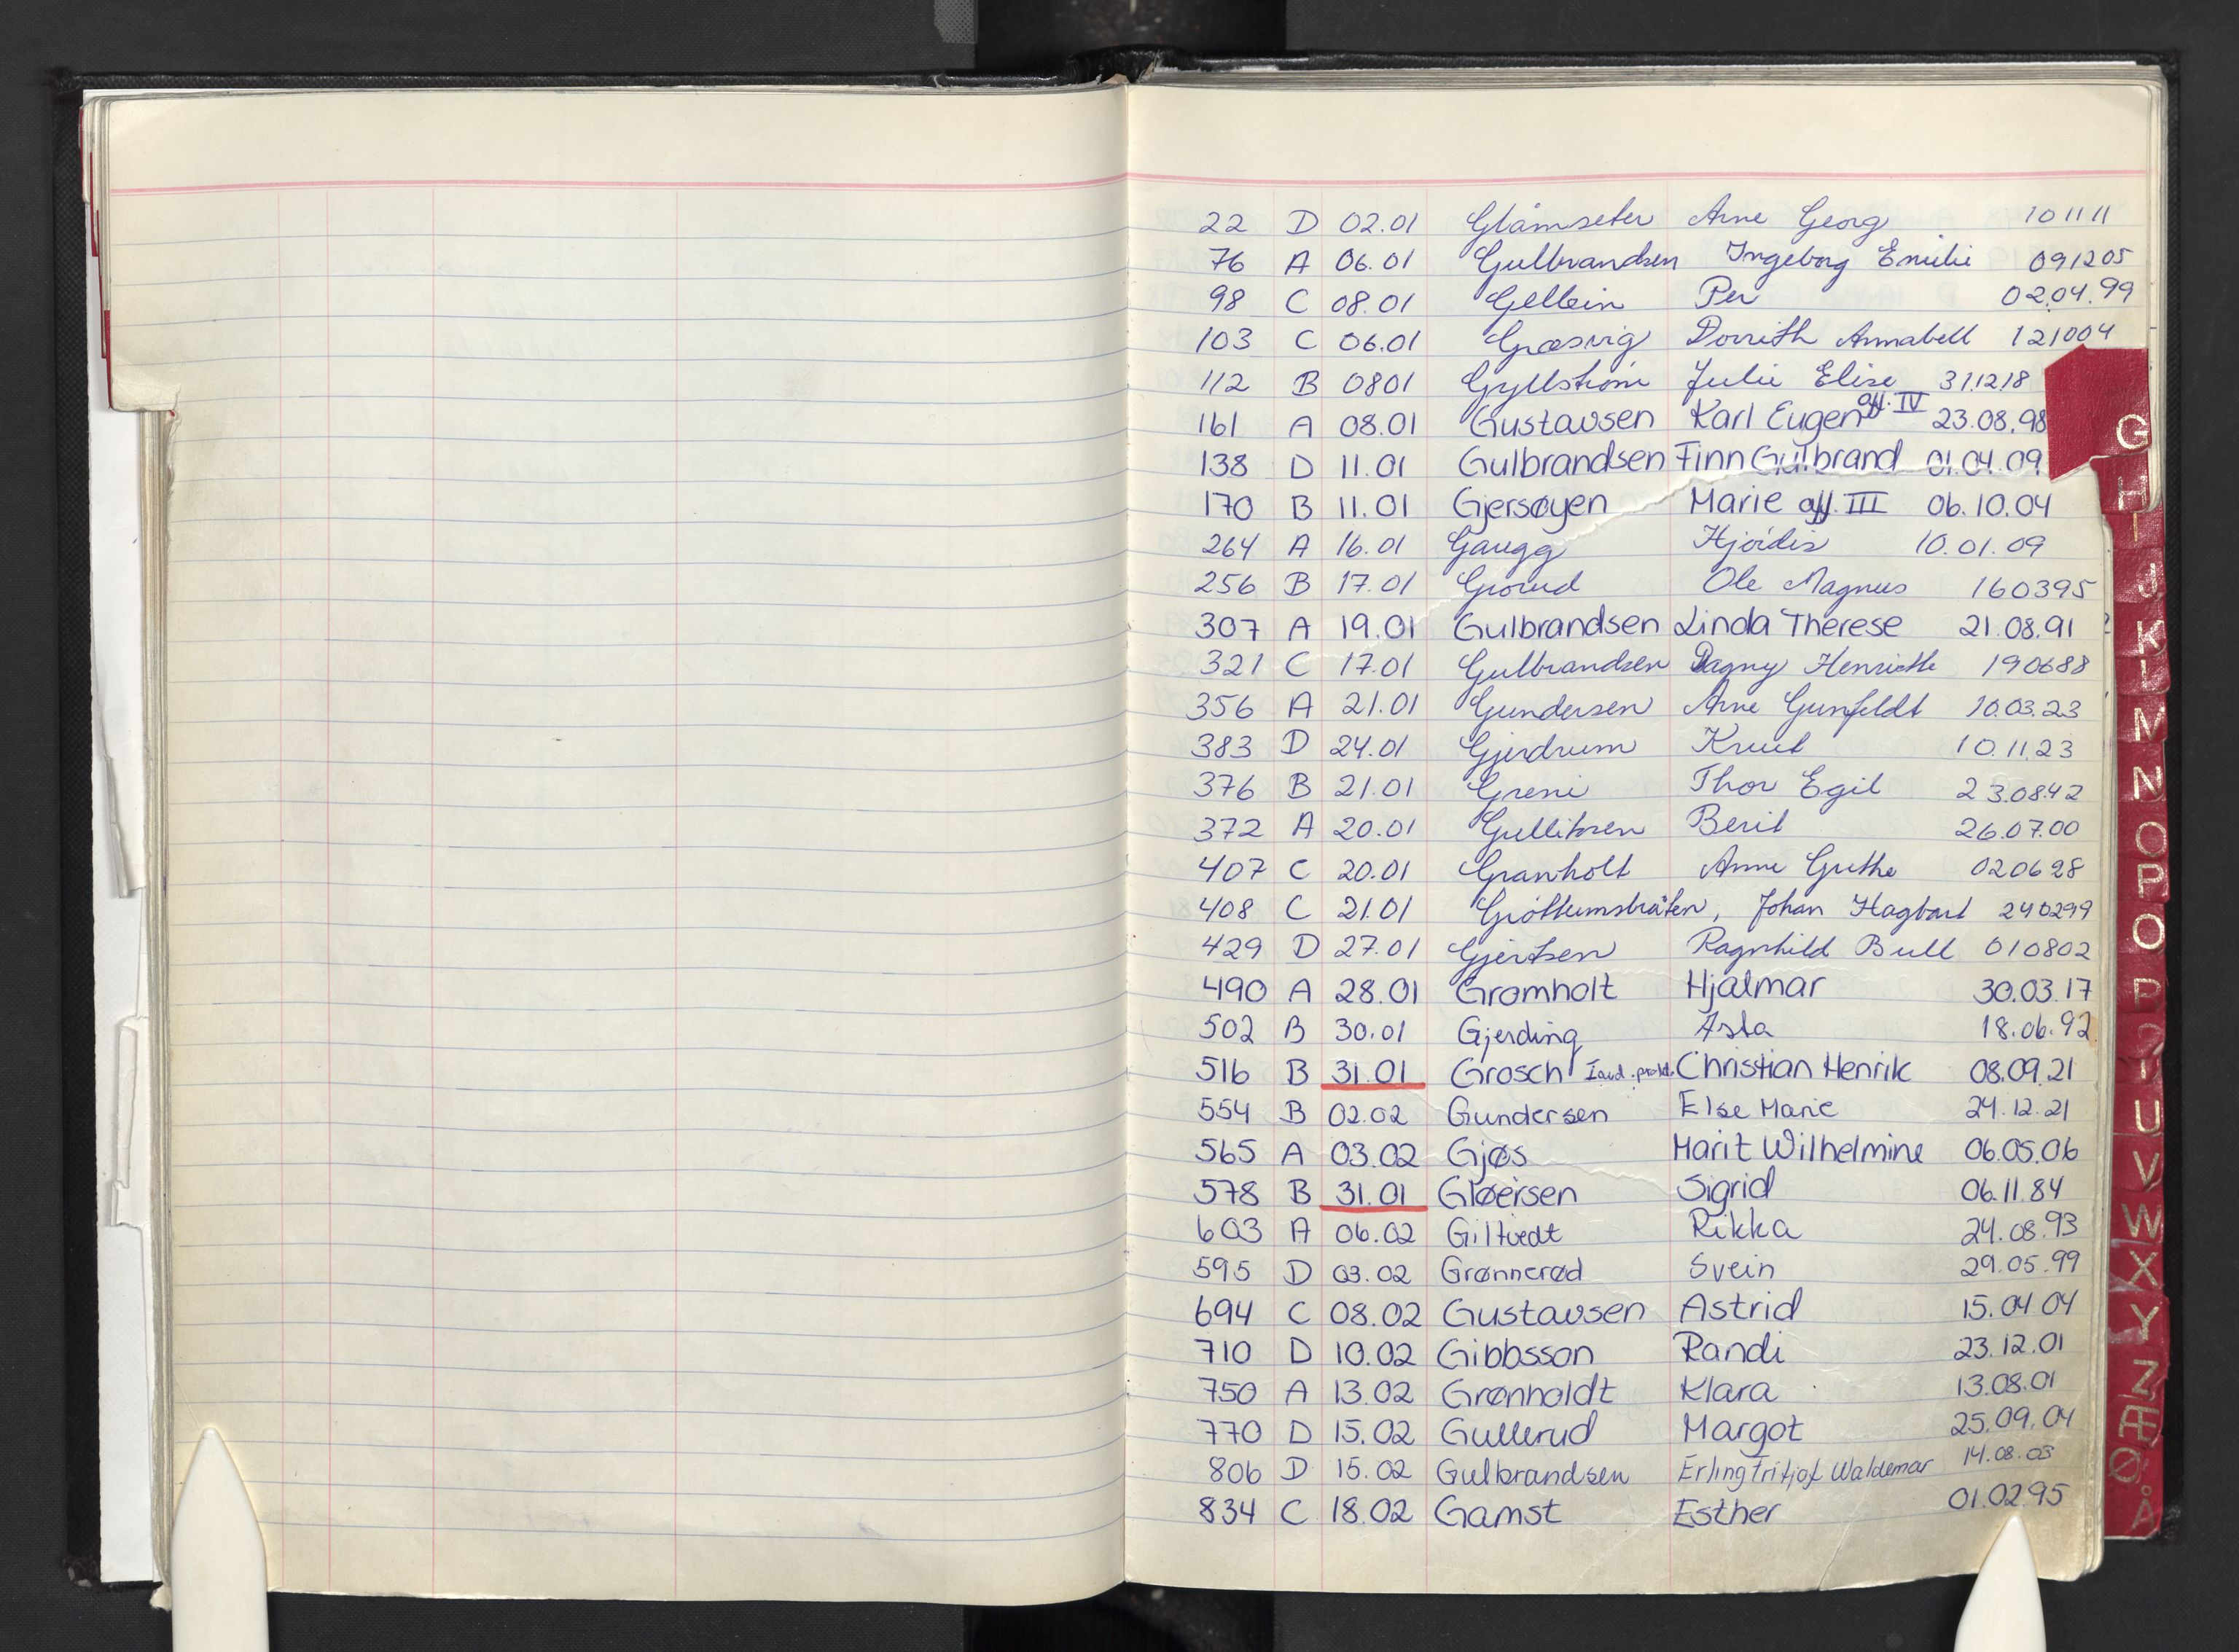 22 D 02.01 Glåmseter Arne Georg 101111
76 A 06.01 Gulbrandsen Ingeborg Emilie 091205
98 C 08.01 Gellein Per 02.04.99
103 C 06.01 Græsvig Dorrith Annabell 121004
112 B 0801 Gyllstrøm Julie Elise 311218
161 A 08.01 Gustavsen Karl Eugen off. IV 23.08.98
138 D 11.01 Gulbrandsen Finn Gulbrand 01.04.09
170 B 11.01 Gjersøyen Marie off. III 06.10.04
264 A 16.01 Gaugg Hjørdis 10.01.09
256 B 17.01 Grorud Ole Magnus 160395
307 A 19.01 Gulbrandsen Linda Therese 21.08.91
321 C 17.01 Gulbrandsen Dagny Henriette 190688
356 A 21.01 Gundersen Arne Gunfeldt 10.03.23
383 D 24.01 Gjerdrum Knut 10.11.23
376 B 21.01 Greni Thor Egil 23.0842
372 A 20.01 Gulliksen Berit 26.07.00
407 C 20.01 Granholt Anne Grethe 020628
408 C 21.01 Grøttumsbråten, Johan Hagbart 240299
429 D 27.01 Gjertsen Ragnhild Bull 010802
490 A 28.01 Gromholt Hjalmar 30.03.17
502 B 30.01 Gjerding Asta 18.06.92
516 B 31.01 Grosch Christian Henrik 08.09.21
554 B 02.02 Gundersen Else Marie 24.12.21
565 A 03.02 Gjøs Marit Wilhelmine 06.05.06
578 B 31.01 Gløersen Sigrid 06.11.84
603 A 06.02 Giltvedt Rikka 24.08.93
595 D 03.02 Grønnerød Svein 29.05.99
694 C 08.02 Gustavsen Astrid 15.04.04
710 D 10.02 Gibbsson Randi 23.12.01
750 A 13.02 Grønholdt Klara 13.08.01
770 D 15.02 Gullerud Margot 25.09.04
806 D 15.02 Gulbrandsen Erling Fritjof Waldemar 14.08.03
834 C 18.02 Gamst Esther 01.02.95
G
H
I
J
K
L
M
N
O
P
O
P
U
V
W
X
Y
Z
Æ
Ø
Å